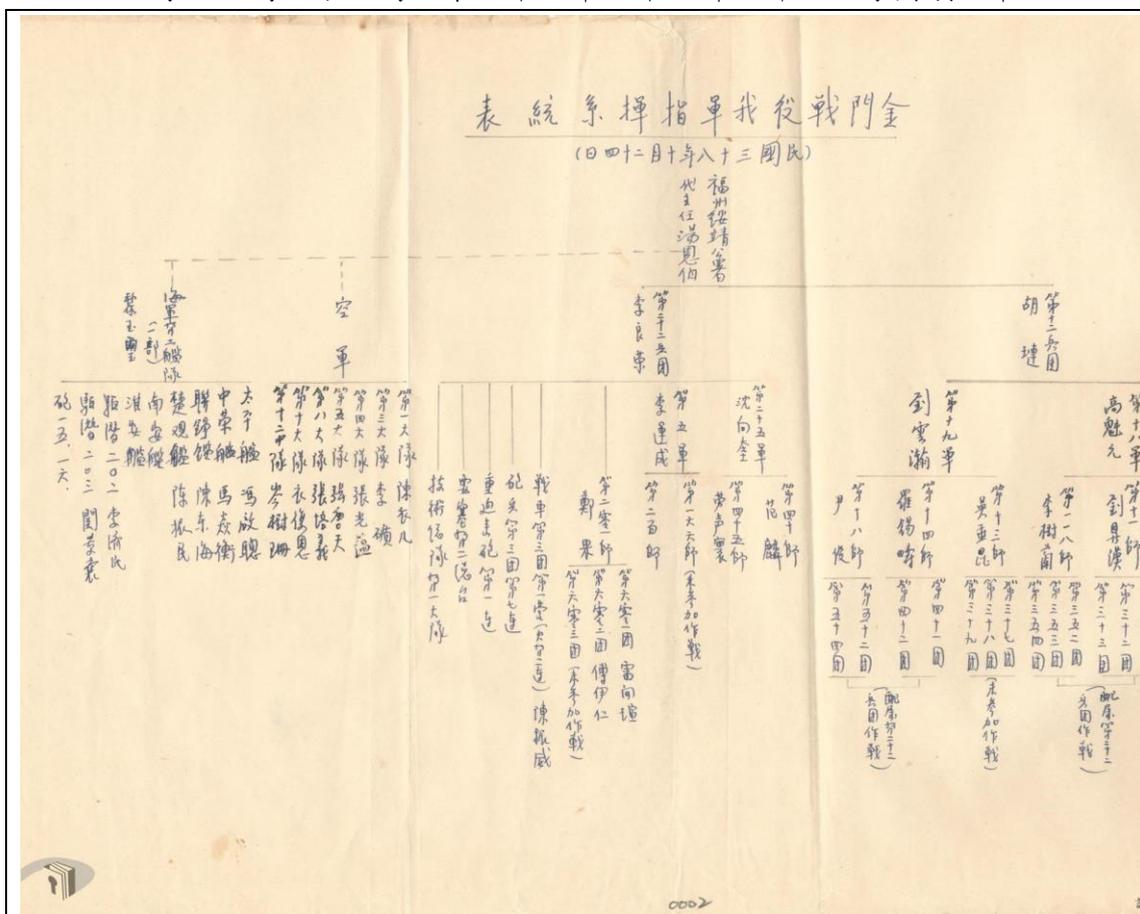 金門戰役我軍指揮系統表
(民國三十八年十月二十四日)
福州綏靖公署
代主任湯恩伯
第十二兵团
胡璉
第十八軍
高魁元
第十一師
劉鼎漢
第三十二團
第三十三團
第一一八師
李樹蘭
第三五二團
第三五三團
第三五四團
(配屬第二十二
兵團作戰)
第十九軍
劉雲瀚
第十三師
吳垂昆
第三十七團
第三十八團
第三十九團
(未參加作戰)
第十四師
羅錫疇
第四十一團
第四十二團
第十八師
尹俊
第五十二團
第五十四團
(配屬第二十二
兵團作戰)
第二十二兵团
李良榮
第二十五軍
沈向奎
第四十師
范麟
第四十五師
勞声寰
第五軍
李運成
第一六六師(未參加作戰)
第二百師
第二零一師
鄭果
第六零一團 雷開瑄
第六零二團 傅伊仁
第六零三團(未參加作戰)
戰車第三團第一營(欠第二連) 陳振威
砲兵第三團第七連
重迫击砲第一連
技術總隊第一大隊
空軍
第一大隊 陳衣凡
第三大隊 李礩
第四大隊 張光蘊
第五大隊 張唐天
第八大隊 張培義
第十大隊 衣復恩
第十二中隊 岑樹珊
海軍第二艦隊
(一部)
黎玉璽
太平艦 馮啟聰
中榮艦 馬焱衡
聯錚艦 陳東海
楚观艦 陈振民
南安艇
淮安艇
驅潛二〇二 李濟民
驅潛二〇三
砲一五.一六.
0002